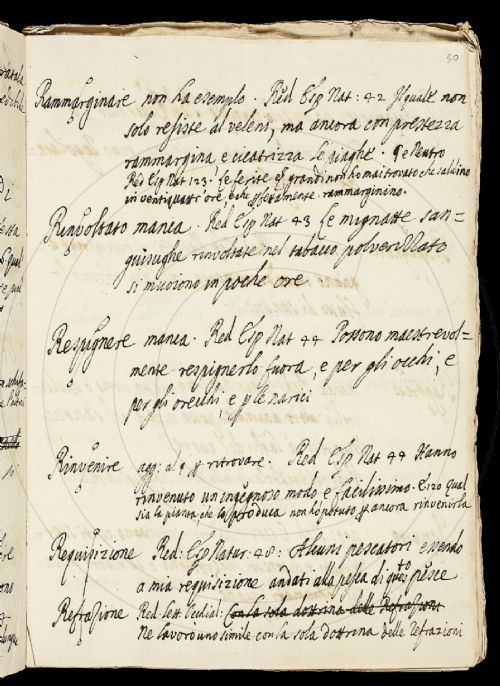 50
Rammarginare non ha esempio. Red Esp Nat: 42 Il quale non
solo resiste al veleno, ma ancora con prestezza
rammargina e cicatrizza le piaghe. Q e Neutro
Red Esp Nat 123. Le ferite grandi non ho mai trovato che saldino
in ventiquattr'ore e che perfettamente rammarginino.
Rinvoltato manca. Red Esp Nat 43 Le mignatte san=
guisughe rinvoltate nel tabacco polverizzato
si muoiono in poche ore
Respignere manca. Red Esp Nat 44 Possono maestrevol=
mente respignerlo fuora, e per gli occhi, e
per gli orecchi, e p le narici
Rinvenire agg: al § p ritrovare. Red Esp Nat 44 Hanno
rinvenuto un ingegnoso modo e facilissimo. E 120 qual
sia la pianta, che la produca non ho potuto p ancora rinvenirla
Requisizione. Red: Esp Natur: 48: Alcuni pescatori essendo
a mia requisizione andati alla pesca di questo pesce
Refrazione Red. Lett. Occhial: Con la sola dottrina delle Refrazioni
Ne lavorò uno simile con la sola dottrina delle refrazioni